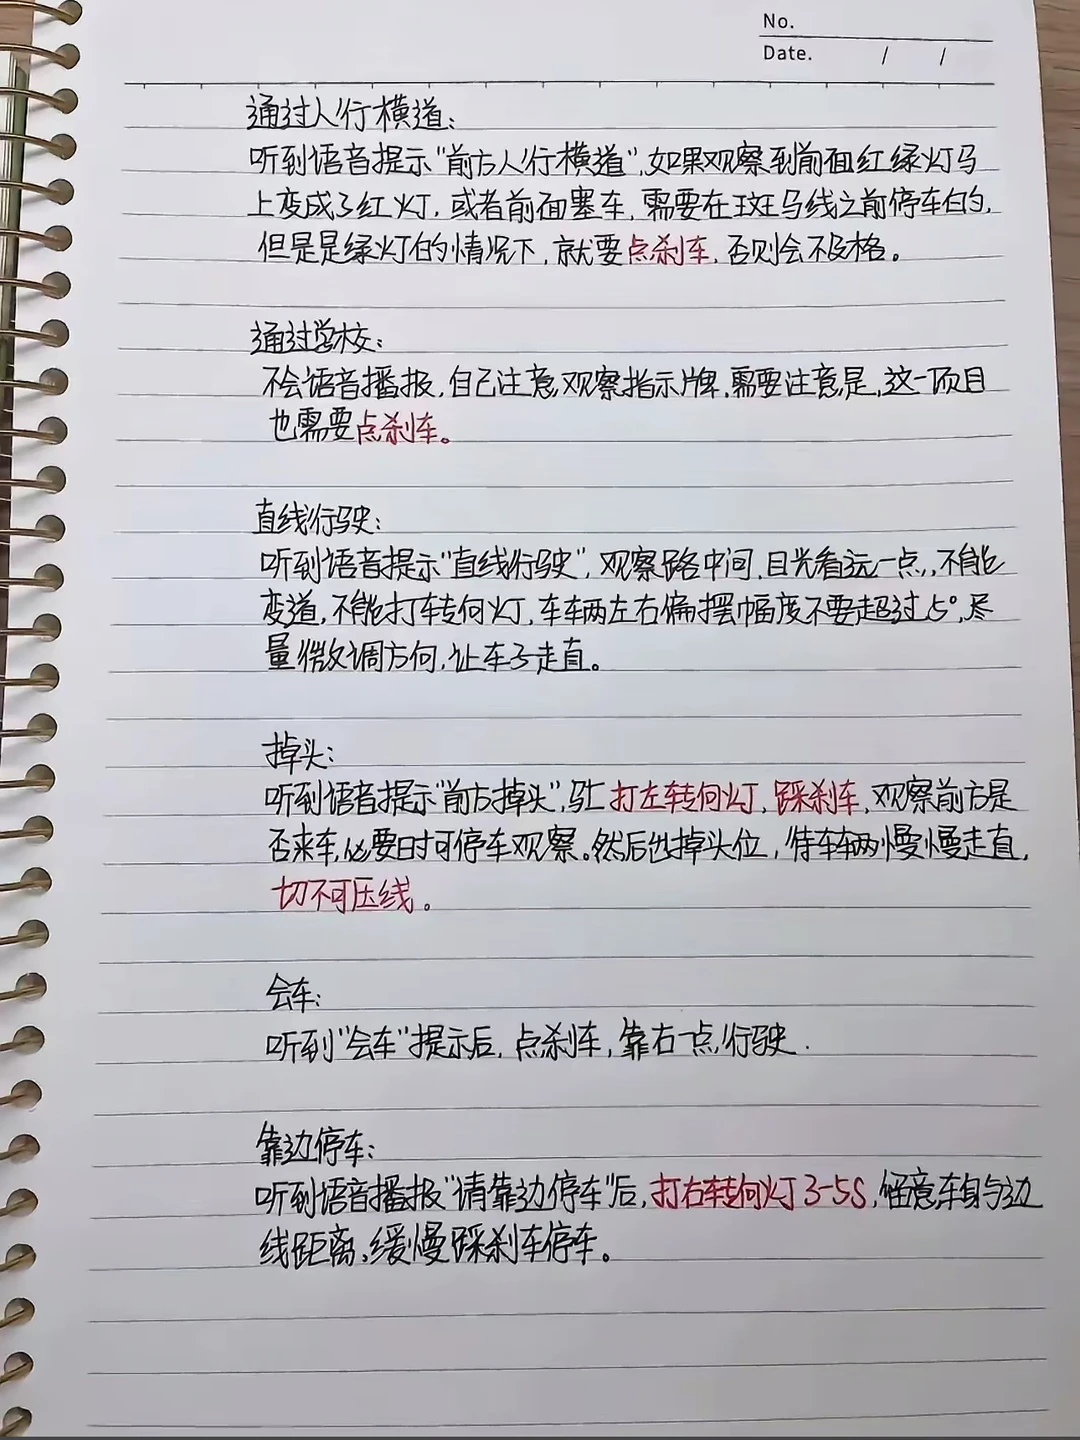 No.
Date. / /
通过人行横道:
听到语音提示"前方人行横道",如果观察到前面红绿灯马
上变成了红灯,或者前面塞车,需要在斑马线之前停车的,
但是是绿灯的情况下,就要点刹车,否则会不及格。
通过学校:
不会语音播报,自己注意观察指示牌,需要注意是,这一项目
也需要点刹车。
直线行驶:
听到语音提示"直线行驶",观察路中间,目光看远一点,,不能
变道,不能打车转向灯,车车两左右偏摆幅度不要超过15°,尽
量微调方向,让车子走直。
掉头:
听到语音提示"前方掉头",马上打左转向灯,踩刹车,观察前方是
否来车,必要日寸可停车观察。然后进掉头位,待车车两慢慢走直,
切不可压线。
会车:
听到"会车"提示后,点刹车,靠右一点行驶.
靠边停车:
听到语音播报"请靠边停车"后,打右转向灯3-5S,留意车身与边
线距离,缓慢踩刹车停车。